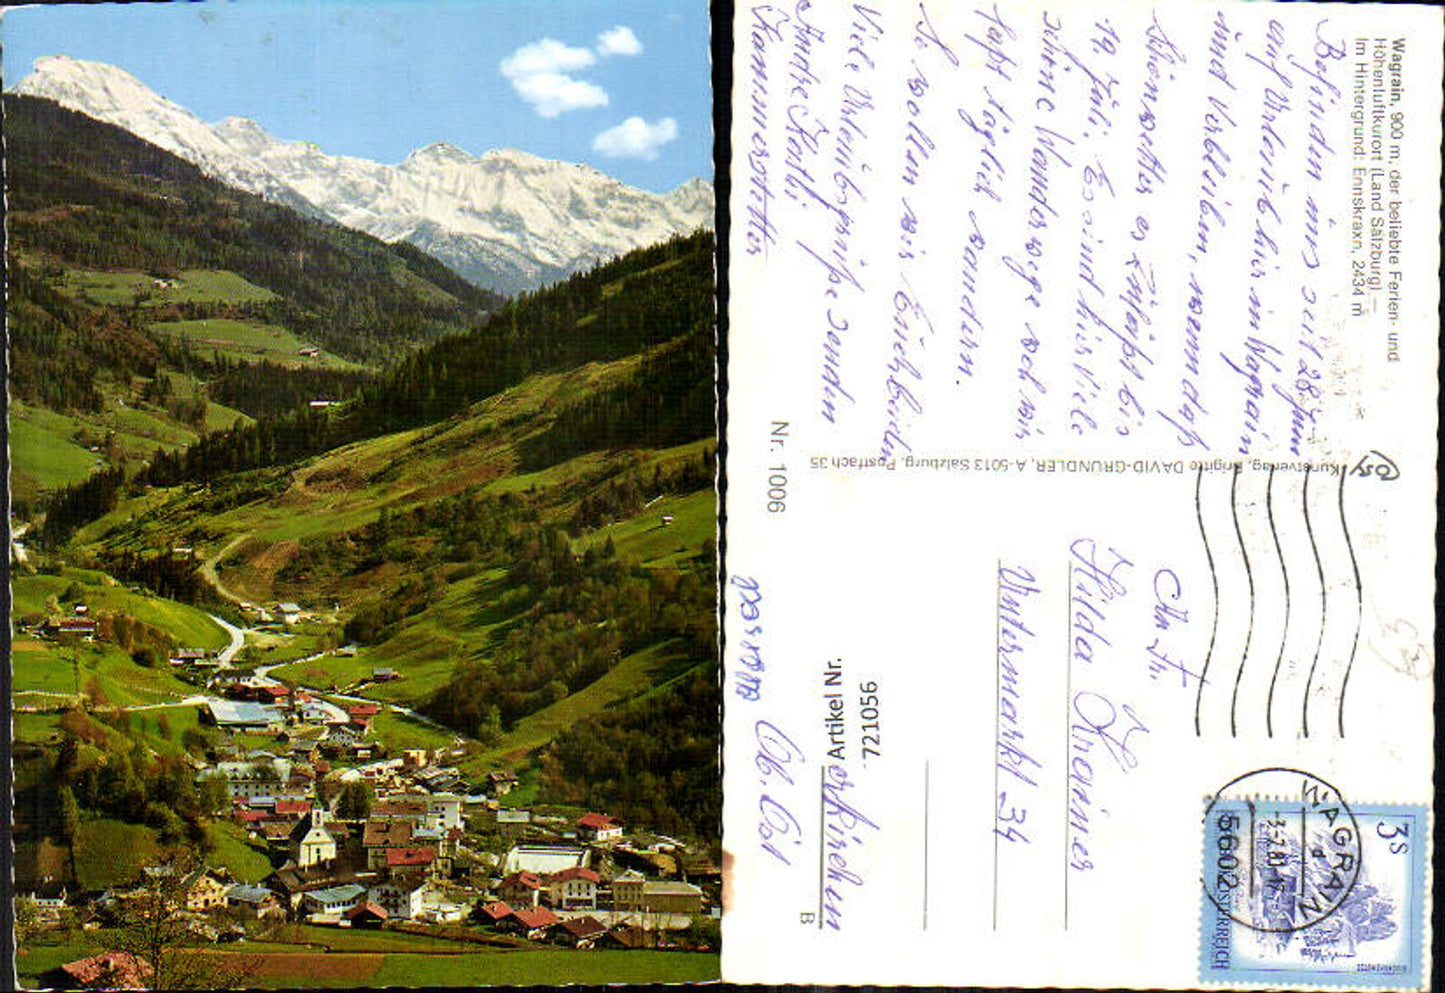 Wagrain, 900 m, der beliebte Ferien- und
Höhenluftkurort (Land Salzburg) —
Im Hintergrund: Ennskraxn, 2434 m
Befinden uns seit 28. Juni
auf Urlaub hier in Wagrain
und Verbleiben, wenn daß
Schönwetter es Zuläßt bis
19 Juli. Es sind hier Viele
schöne Wanderwege wol wir
fast täglich wandern.
So wollen wir Euch beiden
Viele Urlaubsgrüße senden
Andre Kathi
Kammerstetter
Kunstverlag, Brigitte DAVID-GRÜNDLER, A-5013 Salzburg, Postfach 35
Nr. 1006
An Fr.
Hilda Kreamer
Untermarkt 34
Kirchheim
Ob. Öst
Artikel Nr.
721056
B
WAGRAIN
5602
3 S
REPUBLIK ÖSTERREICH